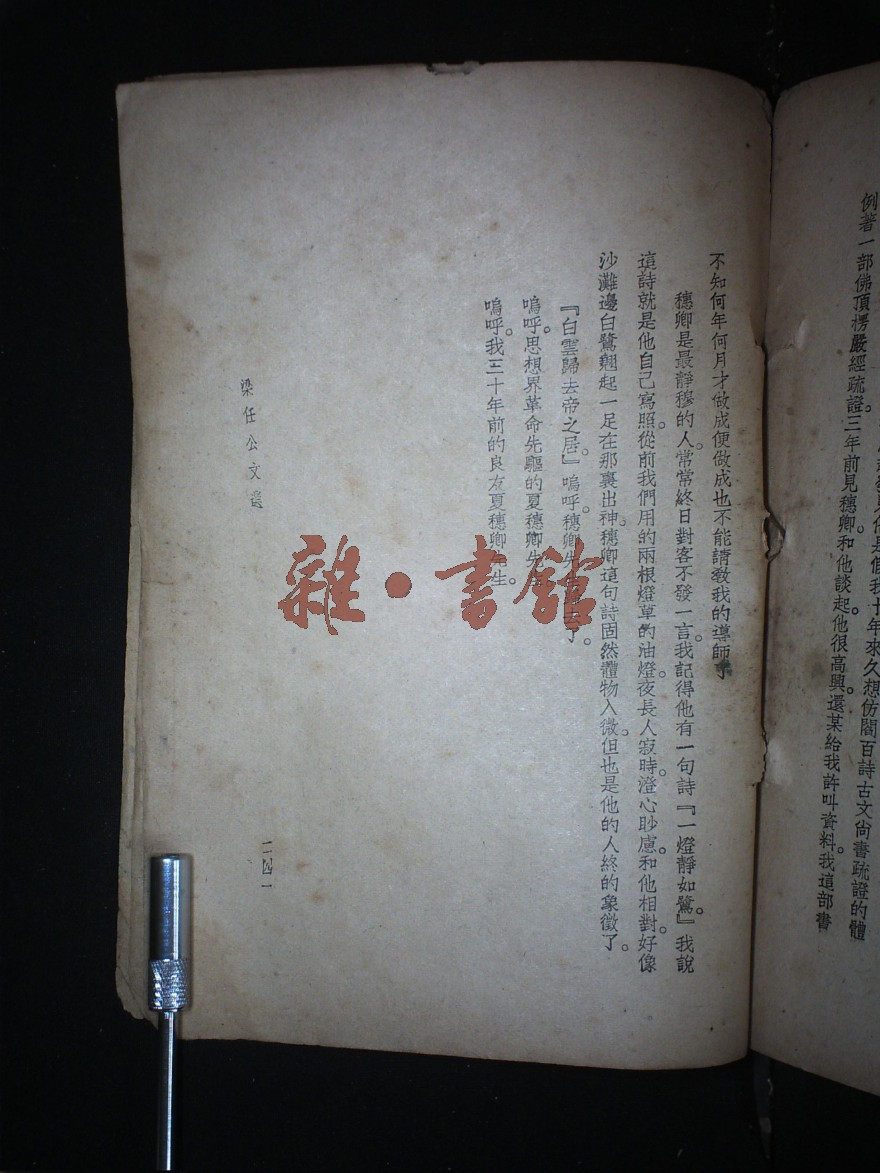 例著一部佛頂楞嚴經疏證。三年前見穗卿和他談起。他很高興。還某給我許叫資料。我這部書
不知何年何月才做成便做成也不能請教我的導師了
穗卿是最靜穆的人。常常終日對客不發一言。我記得他有一句詩『一燈靜如鷺。』我說
這詩就是他自己寫照。從前我們用的兩根燈草的油燈。夜長人寂時。澄心眇慮。和他相對。好像
沙灘邊白鷺翹起一足在那裏出神。穗卿這句詩固然體物入微。但也是他的人終的象徵了。
『白雲歸去帝之居。』嗚呼。穗卿先了。
嗚呼。思想界革命先驅的夏穗卿先生
嗚呼。我三十年前的良友夏穗卿先生。
梁任公文選
二四一
雜·書館